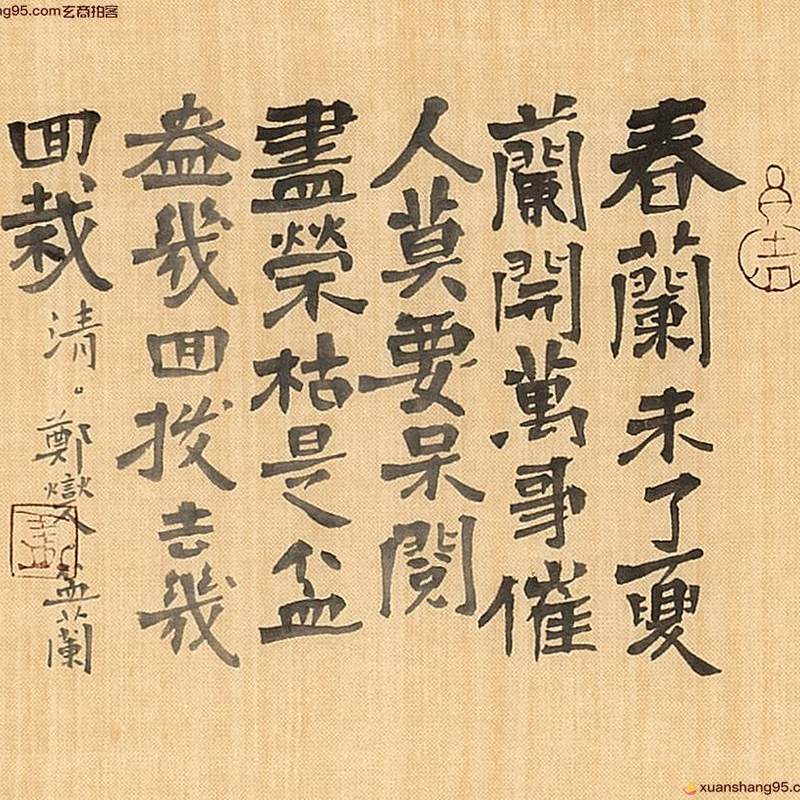 ng95.com玄商拍客
春蘭未了夏
蘭開萬事催
人莫要呆閱
盡榮枯是盆
盎幾囬拔去幾
囬栽 清。鄭燮 盆蘭
xuanshang95.c